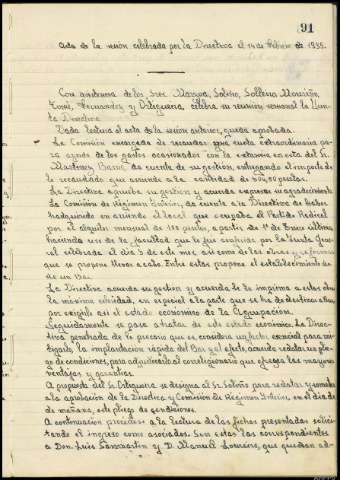 91
Acta de la sesión celebrada por la Directiva el 14 de Febrero de 1935.
Con asistencia de los Sres Marpa, Soleño, Sollena, Monreón,
Tomé, Fernandez y Ortiguera, celebra su reunión semanal la Jun-
ta Directiva
Dada lectura al acta de la sesión anterior, queda aprobada.
La Comisión encargada de recaudar una cuota extraordinaria pa-
ra ayuda de los gastos ocasionados con la estancia en esta del Sr.
Martinez Barrio, da cuenta de su gestion, entregando el importe de
lo recaudado que asciende a la cantidad de pesetas.
La Directiva aprueba su gestión y acuerda expresar su agradecimiento
La Comisión de Régimen Interior, da cuenta a la Directiva de haber
tomado en arriendo el local que ocupaba el Partido Radical
por el alquiler mensual de 150 pesetas, a partir de 1º de Enero ultimo
haciendo uso de la facultad que le fue conferida por la Junta General
celebrada el dia 3 de este mes, asi como de las obras y reformas
que se propone llevar a cabo. Entre estas propone el establecimiento
de un Bar.
La Directiva acuerda su gestion y acuerda se le imprima a estas obras
la máxima celeridad, en especial a la parte que se ha de destinar a bar,
por exigirlo asi el estado economico de la Agrupacion.
Seguidamente se pasa a tratar de este estado económico. La Direc-
tiva penetrada de lo precario que es, considera un factor esencial para mi-
tigarlo, la implantación rápida del Bar y al efecto, acuerda redactar un plie-
go de condiciones, para adjudicarlo al concesionario que ofrezca las mayores
ventajas y garantias.
A propuesta del Sr. Ortiguera se designa al Sr. Soleño para redactar y someter
a la aprobación de la Directiva y Comisión de Régimen Interior, en el dia de
de mañana, este pliego de condiciones.
A continuación procedese a la lectura de las fichas presentadas solici-
tando el ingreso como asociados. Son estas las correspondientes
a Don Luis Sanmartin y D. Manuel Loureiro, que quedan ad-